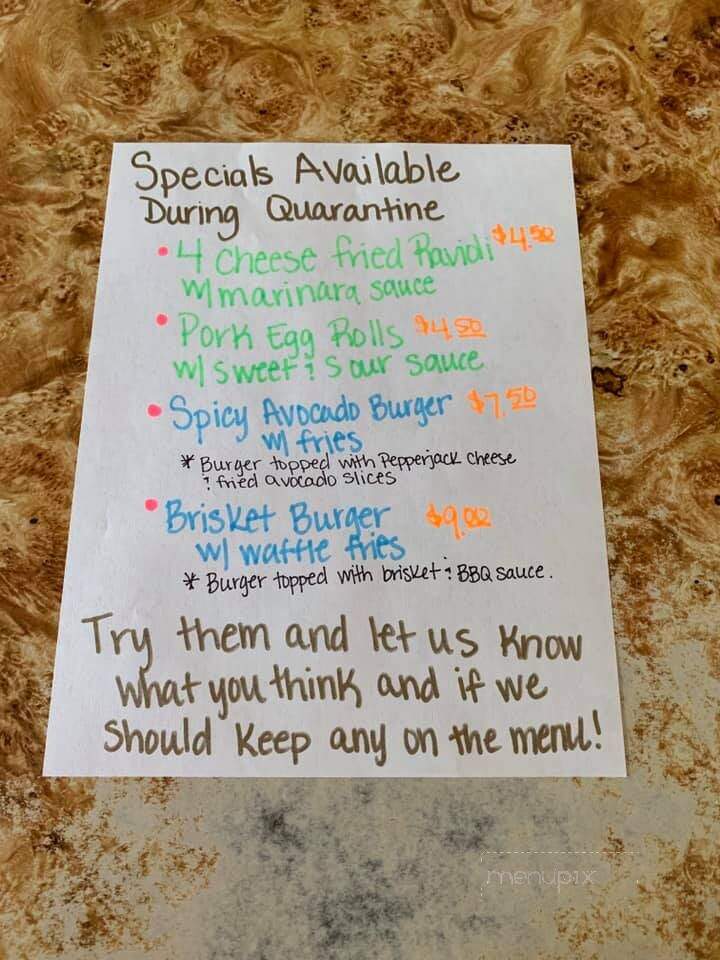 Specials Available
During Quarantine
• 4 Cheese fried Ravioli $4.50
w/ marinara sauce
• Pork Egg Rolls $4.50
w/ sweet & sour sauce
• Spicy Avocado Burger $7.50
w/ fries
* Burger topped with Pepperjack cheese
& fried avocado slices
• Brisket Burger $9.00
w/ waffle fries
* Burger topped with brisket & BBQ sauce.
Try them and let us know
what you think and if we
should keep any on the menu!
menupix